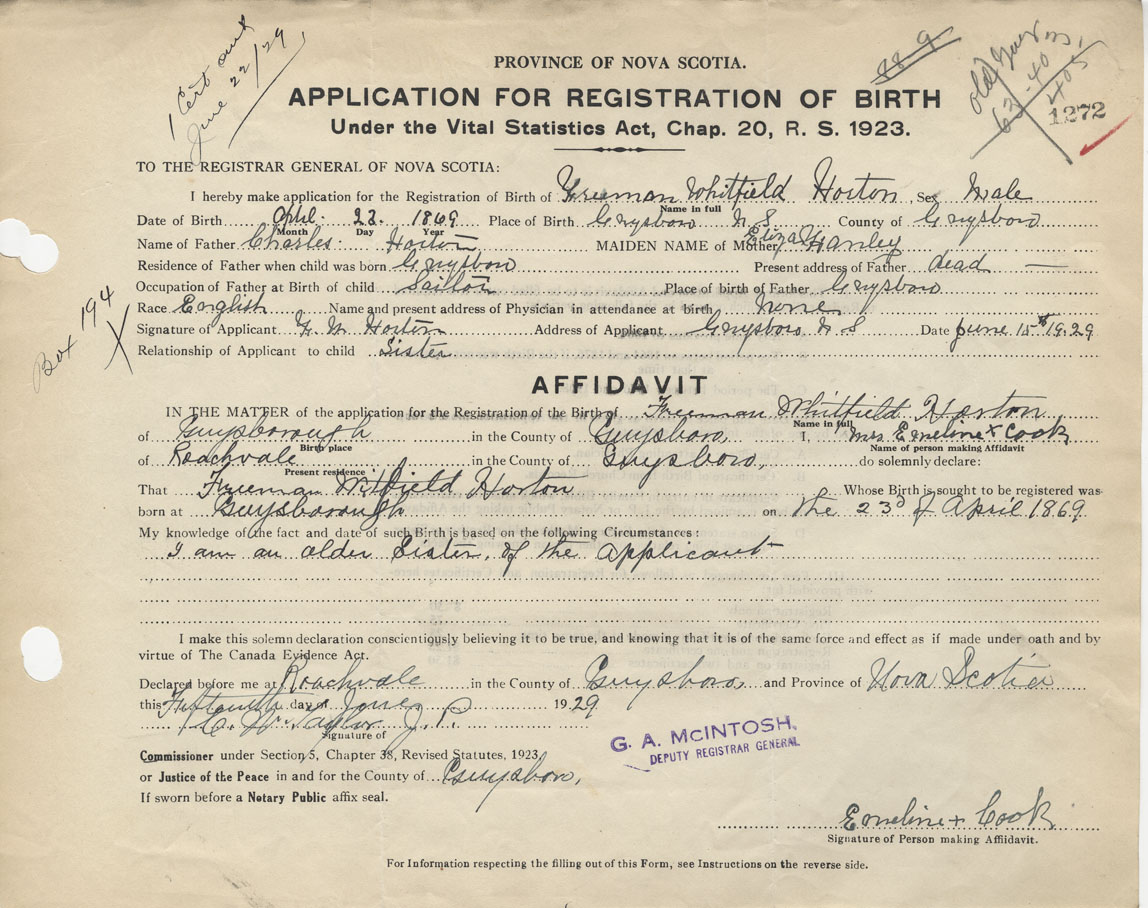 1 Cert and
June 22/29
88 9
old Guys
63 - 40
405
1272
PROVINCE OF NOVA SCOTIA.
APPLICATION FOR REGISTRATION OF BIRTH
Under the Vital Statistics Act, Chap. 20, R. S. 1923.
TO THE REGISTRAR GENERAL OF NOVA SCOTIA:
I hereby make application for the Registration of Birth of Freeman Whitfield Horton Sex Male
Name in full
Date of Birth April 23. 1869 Place of Birth Guysboro N S County of Guysboro
Month Day Year
Name of Father Charles Horton MAIDEN NAME of Mother Eliza Hanley
Residence of Father when child was born Guysboro Present address of Father dead
Occupation of Father at Birth of child Sailor Place of birth of Father Guysboro
Race English Name and present address of Physician in attendance at birth None
Signature of Applicant F. W. Horton Address of Applicant Guysboro N S Date June 15th 1929
Relationship of Applicant to child Sister
Box 194 X
AFFIDAVIT
IN THE MATTER of the application for the Registration of the Birth of Freeman Whitfield Horton
Name in full
of Guysborough in the County of Guysboro, I, Mrs Emeline + Cook
Birth place Name of person making Affidavit
of Roachvale in the County of Guysboro, do solemnly declare:
Present residence
That Freeman Whitfield Horton Whose Birth is sought to be registered was
born at Guysborough on the 23d of April 1869
My knowledge of the fact and date of such Birth is based on the following Circumstances:
I am an older Sister, of the applicant
I make this solemn declaration conscientiously believing it to be true, and knowing that it is of the same force and effect as if made under oath and by
virtue of The Canada Evidence Act.
Declared before me at Roachvale in the County of Guysboro, and Province of Nova Scotia
this Fifteenth day of June 1929
C. W. Taylor J. P.
Signature of
Commissioner under Section 5, Chapter 38, Revised Statutes, 1923,
or Justice of the Peace in and for the County of Guysboro,
If sworn before a Notary Public affix seal.
G. A. McINTOSH,
DEPUTY REGISTRAR GENERAL
Emeline + Cook
Signature of Person making Affidavit.
For Information respecting the filling out of this Form, see Instructions on the reverse side.